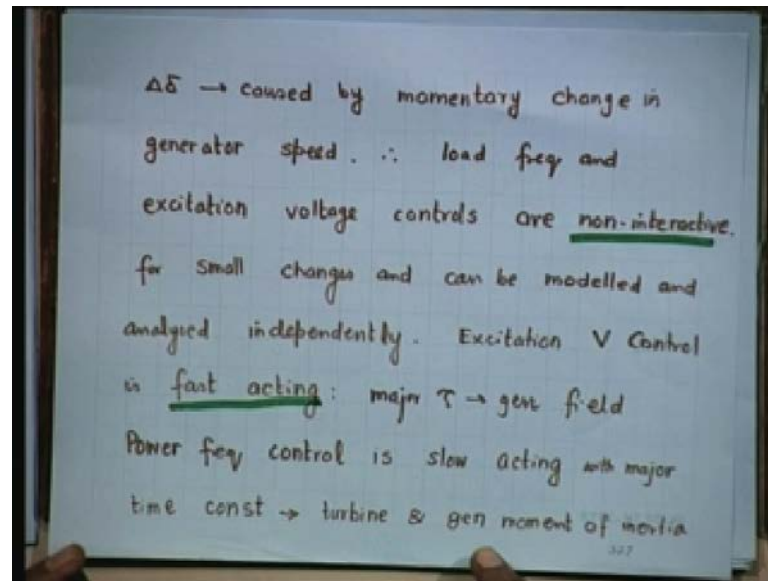 Δδ → caused by momentary change in
generator speed. ∴ load freq and
excitation voltage controls are non-interactive.
for small changes and can be modelled and
analysed independently. Excitation V Control
is fast acting: major τ → gen field
Power feq control is slow acting with major
time const → turbine & gen moment of inertia
327